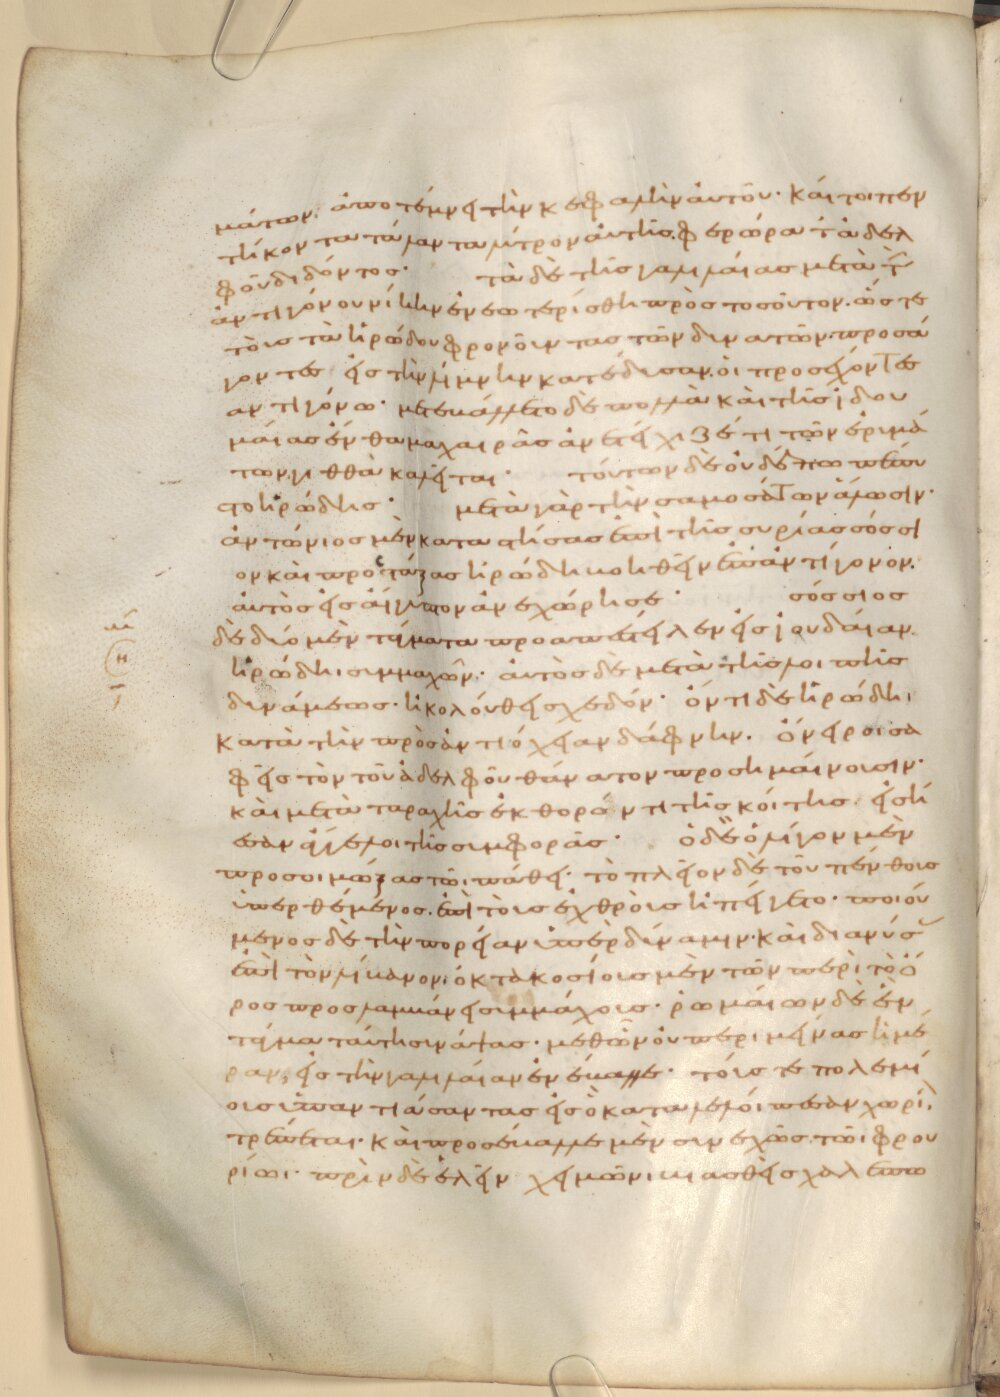 μάτων, ἀποτέμνει τὴν κεφαλὴν ἀυτοῦ· κάι τοι πεν
τήκοντα τάλαντα λύτρον ἀυτῆς φερώρα τἀδελ
φοῦ διδόντος· τὰ δὲ τῆς γαλιλάιας μετὰ τὴν
ἀντιγόνου νίκην ἐνεωτερίσθη πρὸς τοσοῦτον. ὥστε
τοὺς τὰ ἡρώδου φρονοῦντας τῶν δυνατῶν. προσά
γοντες εἰς τὴν λίμνην κατέδυσαν. ὁι προσέχοντες
αντιγόνω· μετεβάλλετο δὲ πολλὰ κὰι τῆς ϊδου
μάιας ἔνθα μαχαιρᾶς ἀνετείχιζέ τι τῶν ἐρυμά
των, γιθθὰ καλεῖται· τούτων δὲ ὀυδέπω πέπυσ
το ἡρώδης· μετὰ γὰρ τὴν σαμοσάτων ἅλωσιν·
ἀντώνιος μὲν καταστήσας ἐπὶ τῆς συρίας σόσσι
ον κὰι προστάξας ἡρώδη βοηθεῖν ἐπ ἀντίγονον.
ἀυτὸς εἰς ἀίγυπτον ἀνεχώρησε· σόσσιος
δὲ δύο μὲν τάγματα προαπέστειλεν εἰς ϊουδάιαν.
ἡρώδηι συμμαχῶν· ἀυτὸς δὲ μετὰ τῆς λοιπῆς
δυνάμεως· ἠκολόυθει σχεδόν· ὄντι δὲ ἡρώδηι
κατὰ τὴν πρὸς ἀντιόχειαν δάφνην. ὄνειροι σα
φεῖς τὸν τοῦ ἀδελφοῦ θάνατον προσημάινουσιν·
κὰι μετὰ ταραχῆς ἐκθορόντι τῆς κόιτης. εἰσή
εσαν ἄγγελοι τῆς συμφορᾶς· ὁ δὲ ὀλίγον μὲν
προσοιμώξας τῶι πάθει· τὸ πλεῖον δὲ τοῦ πένθους
ὑπερθέμενος. ἐπὶ τοὺς ἐχθροὺς ἠπείγετο· ποιού
μενος δὲ τὴν πορείαν ὑπὲρ δύναμιν· κὰι διανύσας
ἐπὶ τὸν λίβανον, ὀκτακοσίους μὲν τῶν περὶ τὸ ὄ
ρος προσλαμβάνει συμμάχους· ῥωμάιων δὲ ἓν
τάγμα ταύτη συνάψας· μεθ ὧν ὀυ περιμείνας ἡμέ
ραν, εἰς τὴν γαλιλάιαν ἐνέβαλλε· τούς τε πολεμί
ους ὑπαντιάσαντας εἰς ὃ καταλελόιπεσαν χωρίον
τρέπεται· κὰι προσέβαλλε μὲν συνεχῶς τῶι φρου
ρίωι· πρὶν δὲ ἑλεῖν χειμῶνι βιασθεὶς χαλεπω